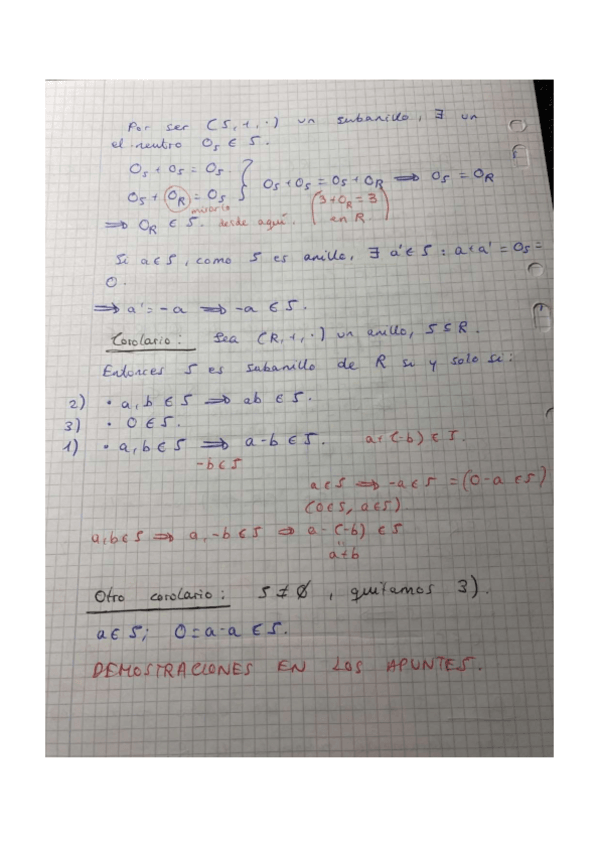 Por ser (S, +, ·) un subanillo, ∃ un
el neutro 0s ∈ S.
0s + 0s = 0s
0s + 0R = 0s } 0s + 0s = 0s + 0R ⟹ 0s = 0R
mirarlo desde aquí. (3 + 0R = 3 en R.)
⟹ 0R ∈ S.
Si a ∈ S, como S es anillo, ∃ a' ∈ S : a + a' = 0s =
0.
⟹ a' = -a ⟹ -a ∈ S.
Corolario: Sea (R, +, ·) un anillo, S ≤ R.
Entonces S es subanillo de R si y solo si:
2) • a, b ∈ S ⟹ ab ∈ S.
3) • 0 ∈ S.
1) • a, b ∈ S ⟹ a - b ∈ S. a + (-b) ∈ S.
-b ∈ S
a ∈ S ⟹ -a ∈ S = (0 - a ∈ S)
(0 ∈ S, a ∈ S)
a, b ∈ S ⟹ a, -b ∈ S ⟹ a - (-b) ∈ S
a + b
Otro corolario: S ≠ ∅, quitamos 3).
a ∈ S; 0 = a - a ∈ S.
DEMOSTRACIONES EN LOS APUNTES.